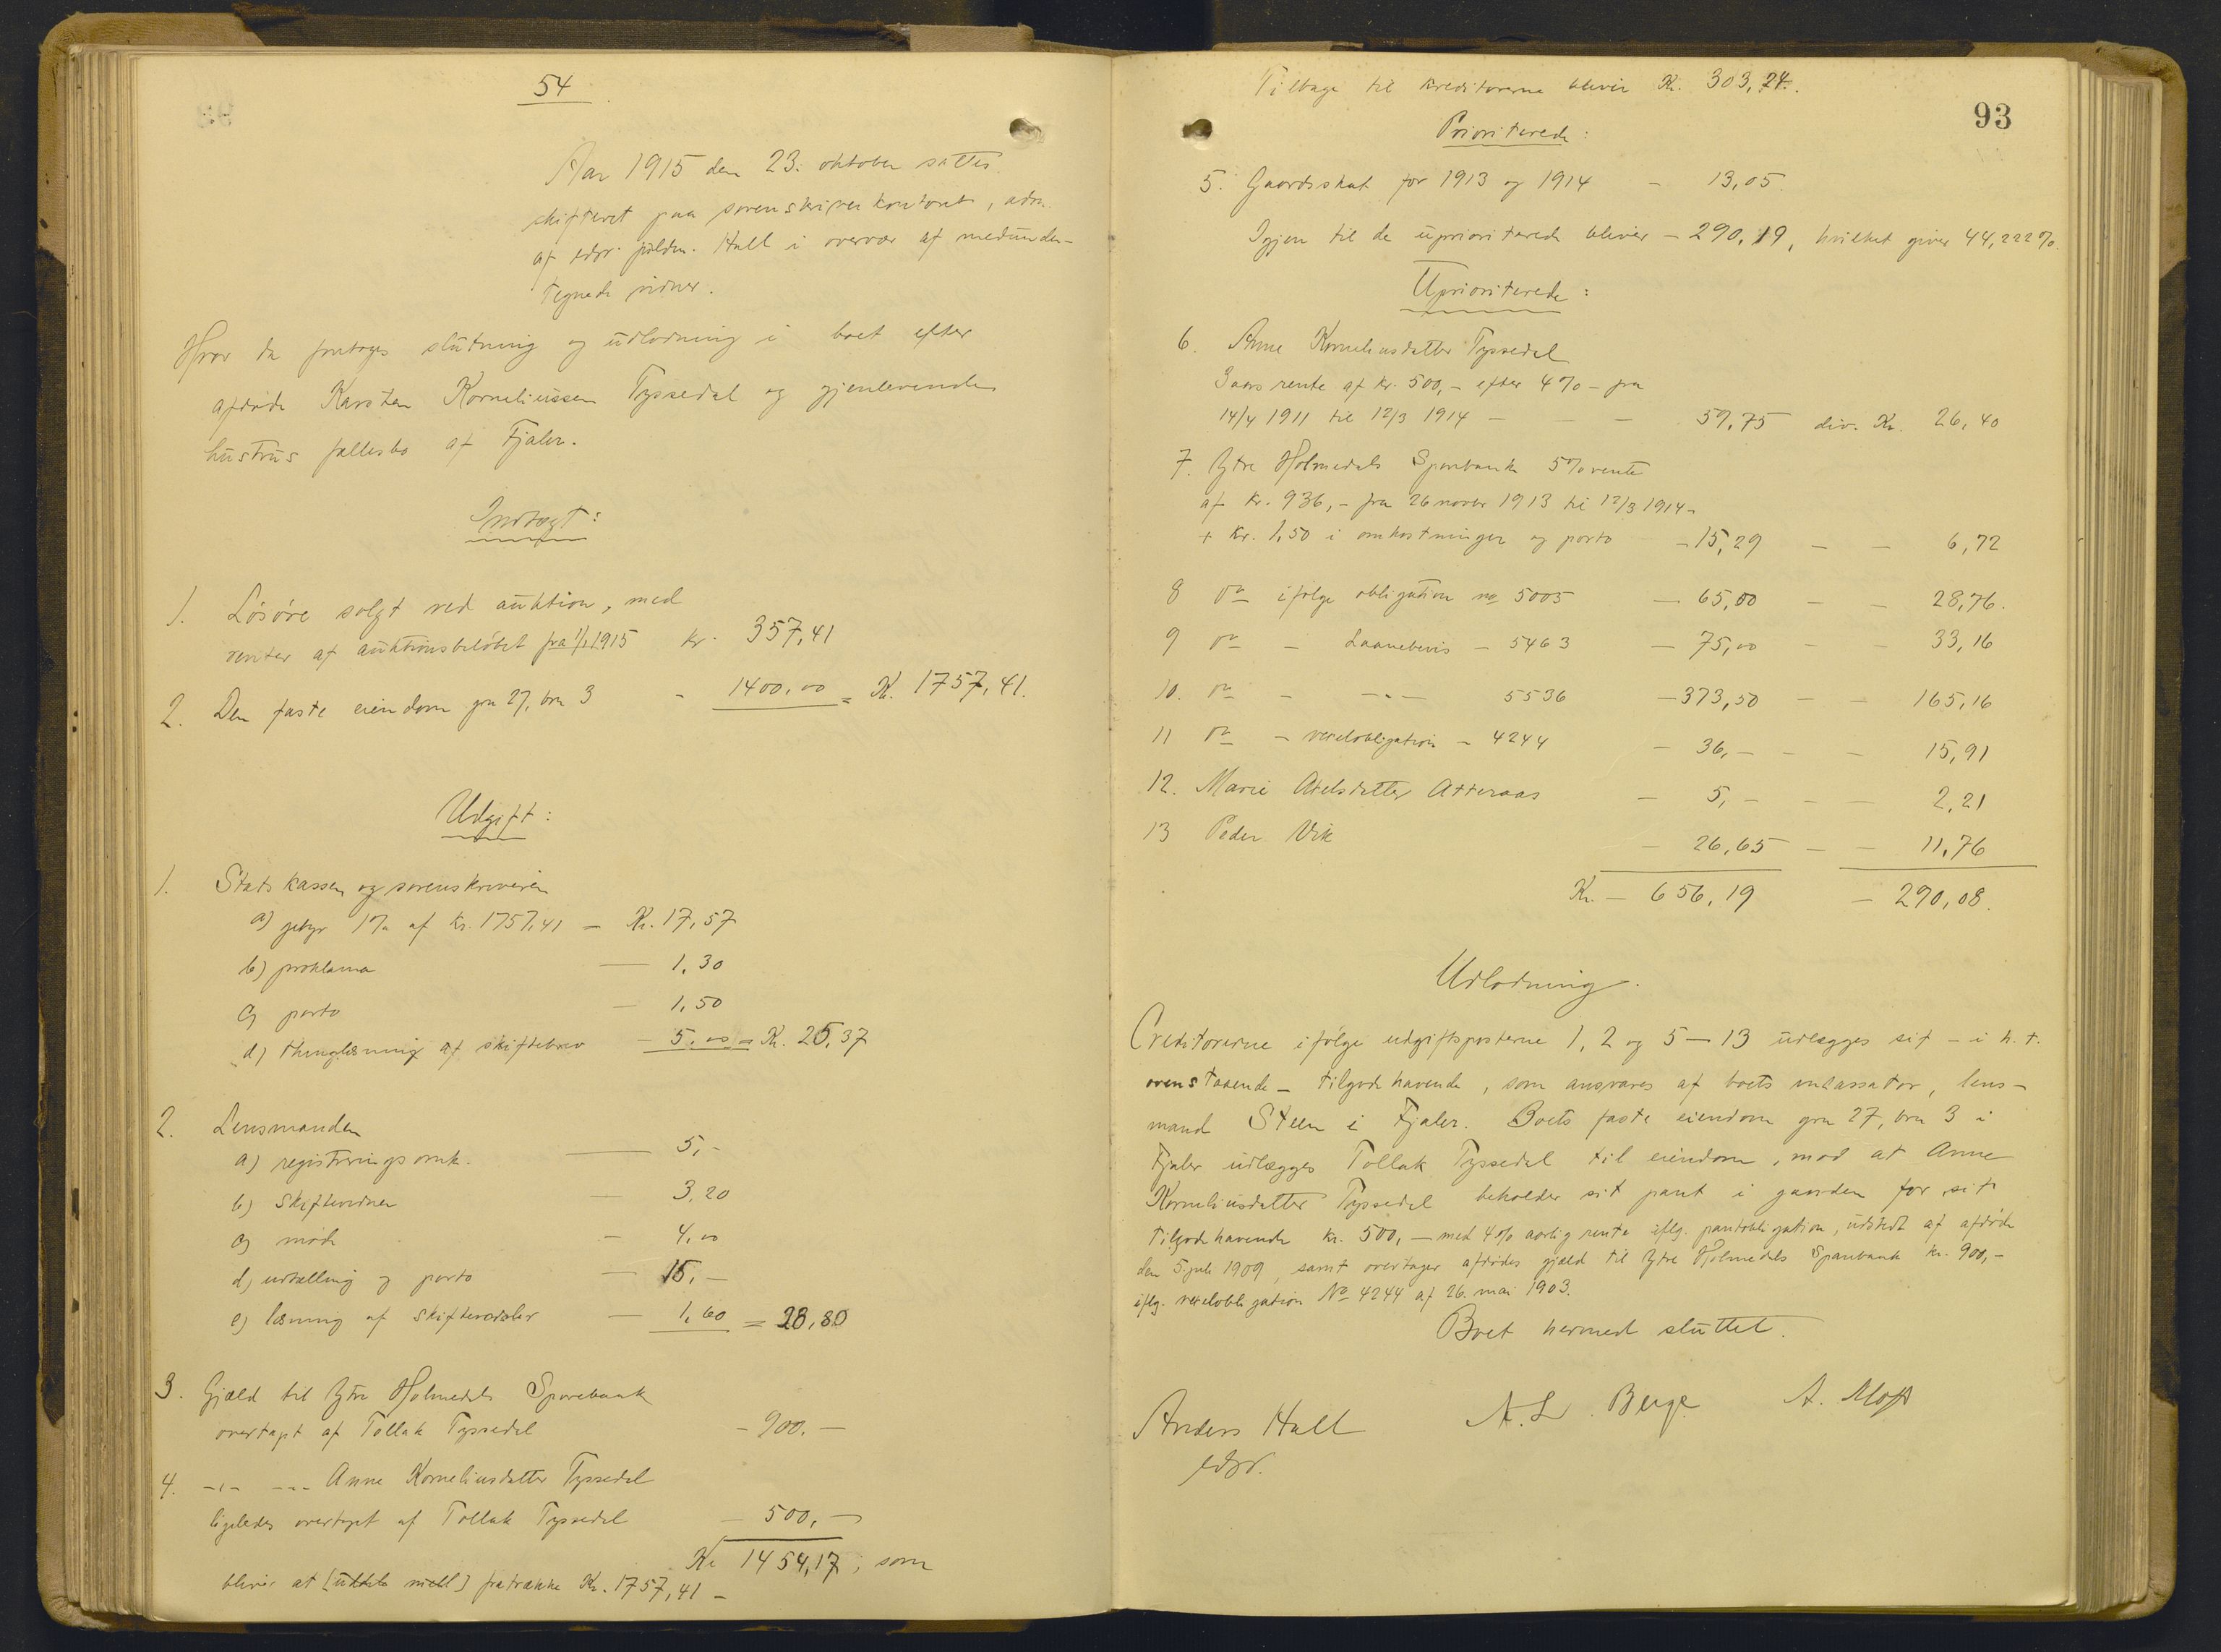 54
Aar 1915 den 23. oktober sattes
skifteret paa sorenskriverkontoret, adm.
af edsv. fuldm. Hall i overvær af medunder-
tegnede vidner.
Hvor da foretoges slutning og udlodning i boet efter
afdøde Karsten Korneliussen Tyssedal og gjenlevende
hustrus fællesbo af Fjaler.
Indtægt:
1. Løsøre solgt ved auktion, med
renter af auktionsbeløbet fra 1/1 1915 kr. 357,41
2. Den faste eiendom gn 27, bn 3 - 1400,00 = Kr. 1757,41.
Udgift:
1. Statskassen og sorenskriveren
a) gebyr 1% af kr. 1757,41 — Kr. 17,57
b) proklama — 1,30
c) porto — 1,50
d) thinglæsning af skiftebrev — 5,00 = Kr. 25,37
2. Lensmanden
a) registreringsomk. — 5,-
b) Skiftevidner — 3,20
c) møde — 4,00
d) udtælling og porto — 15,—
e) læsning af skifteværdsler — 1,60 = 28,80
3. Gjæld til Ytre Holmedals Sparebank
overtagt af Tollak Tyssedal - 900,—
4. -"- -"- Anne Korneliusdatter Tyssedal
ligeledes overtaget af Tollak Tyssedal — 500,—
Kr 1454,17, som
blivir at fratrække Kr. 1757,41 -
Tilbage til kreditorerne blivir Kr. 303,24.
93
Prioriterede:
5. Gaardsskat for 1913 og 1914 - 13,05
Igjen til de uprioriterede blivir - 290,19, hvilket giver 44,222%.
Uprioriterede:
6. Anne Korneliusdatter Tyssedal
3 aars rente af kr. 500,- efter 4% - fra
14/4 1911 til 12/3 1914 — — — 59,75 div. Kr. 26,40
7. Ytre Holmedals Sparebank 5% rente
af kr. 936,- fra 26 novbr 1913 til 12/3 1914-
+ kr. 1,50 i omkostninger og porto - 15,29 — — 6,72
8 do ifølge obligation no 5005 — 65,00 — — 28,76.
9 do - Laanebevis - 5463 — 75,00 — — 33,16
10. do - -"- 5536 — 373,50 — — 165,16
11 do - vexelobligation - 4244 — 36,- — — 15,91
12. Marie Axelsdatter Atteraas — 5,- — — 2,21
13 Peder Vik — 26,65 — — 11,76
Kr. — 656,19 — 290,08.
Udlodning.
Creditorerne ifølge udgiftsposterne 1, 2 og 5—13 udlægges sit - i h. t.
ovenstaaende - tilgodehavende, som ansvares af boets incassator, lens-
mand Steen i Fjaler. Boets faste eiendom gn 27, bn 3 i
Fjaler udlægges Tollak Tyssedal til eiendom, mod at Anne
Korneliusdatter Tyssedal beholder sit pant i gaarden for sit
tilgodehavende kr. 500,— med 4% aarlig rente iflg. pantobligation, udstedt af afdøde
den 5. juli 1909, samt overtager afdødes gjæld til Ytre Holmedals Sparebank kr. 900,-
iflg. vexelobligation No 4244 af 26. mai 1903.
Boet hermed sluttet.
Anders Hall A. L. Berge A. Moft
edsv.